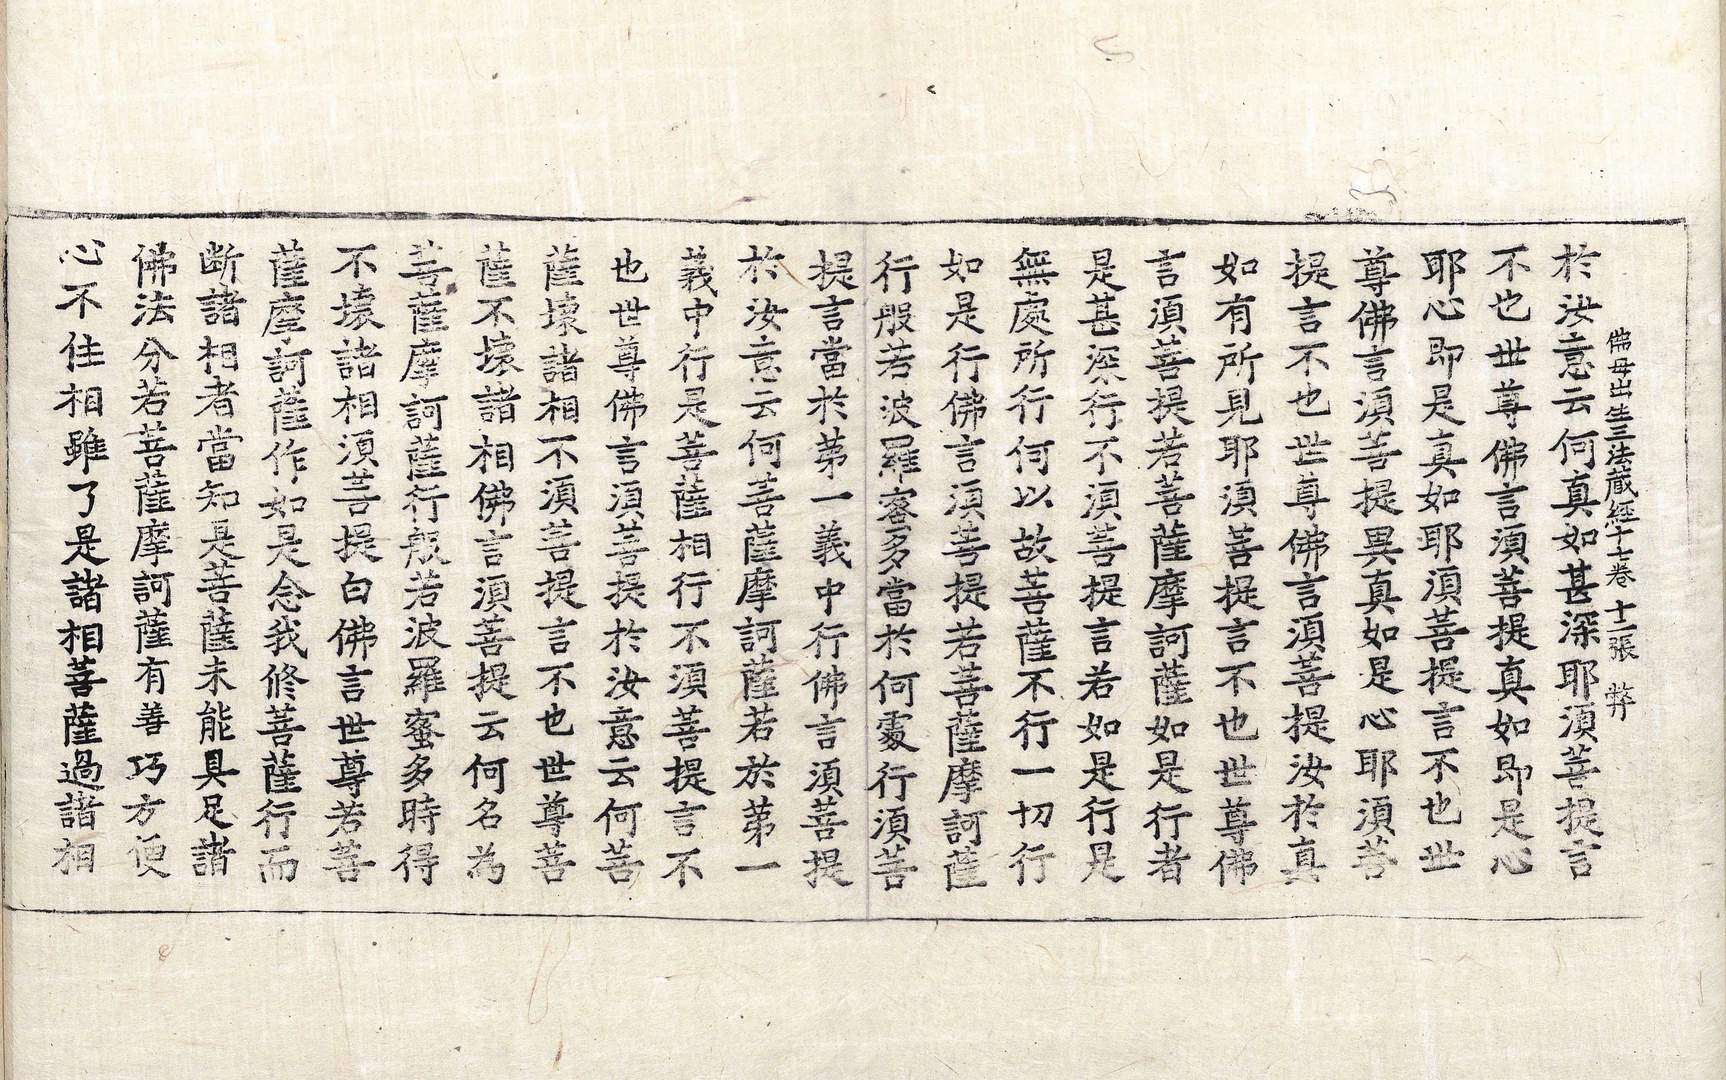 佛母出生三法藏經十七卷 十二張 弊
於汝意云何真如甚深耶湏菩提言
不也世尊佛言湏菩提真如即是心
耶心即是真如耶湏菩提言不也世
尊佛言湏菩提異真如是心耶湏菩
提言不也世尊佛言湏菩提汝於真
如有所見耶湏菩提言不也世尊佛
言湏菩提若菩薩摩訶薩如是行者
是甚深行不湏菩提言若如是行是
無處所行何以故菩薩不行一切行
如是行佛言湏菩提若菩薩摩訶薩
行般若波羅蜜多當於何處行湏菩
提言當於苐一義中行佛言湏菩提
於汝意云何菩薩摩訶薩若於苐一
義中行是菩薩相行不湏菩提言不
也世尊佛言湏菩提於汝意云何菩
薩壞諸相不湏菩提言不也世尊菩
薩不壞諸相佛言湏菩提云何名為
菩薩摩訶薩行般若波羅蜜多時得
不壞諸相湏菩提白佛言世尊若菩
薩摩訶薩作如是念我修菩薩行而
断諸相者當知是菩薩未能具足諸
佛法分若菩薩摩訶薩有善巧方便
心不住相雖了是諸相菩薩過諸相